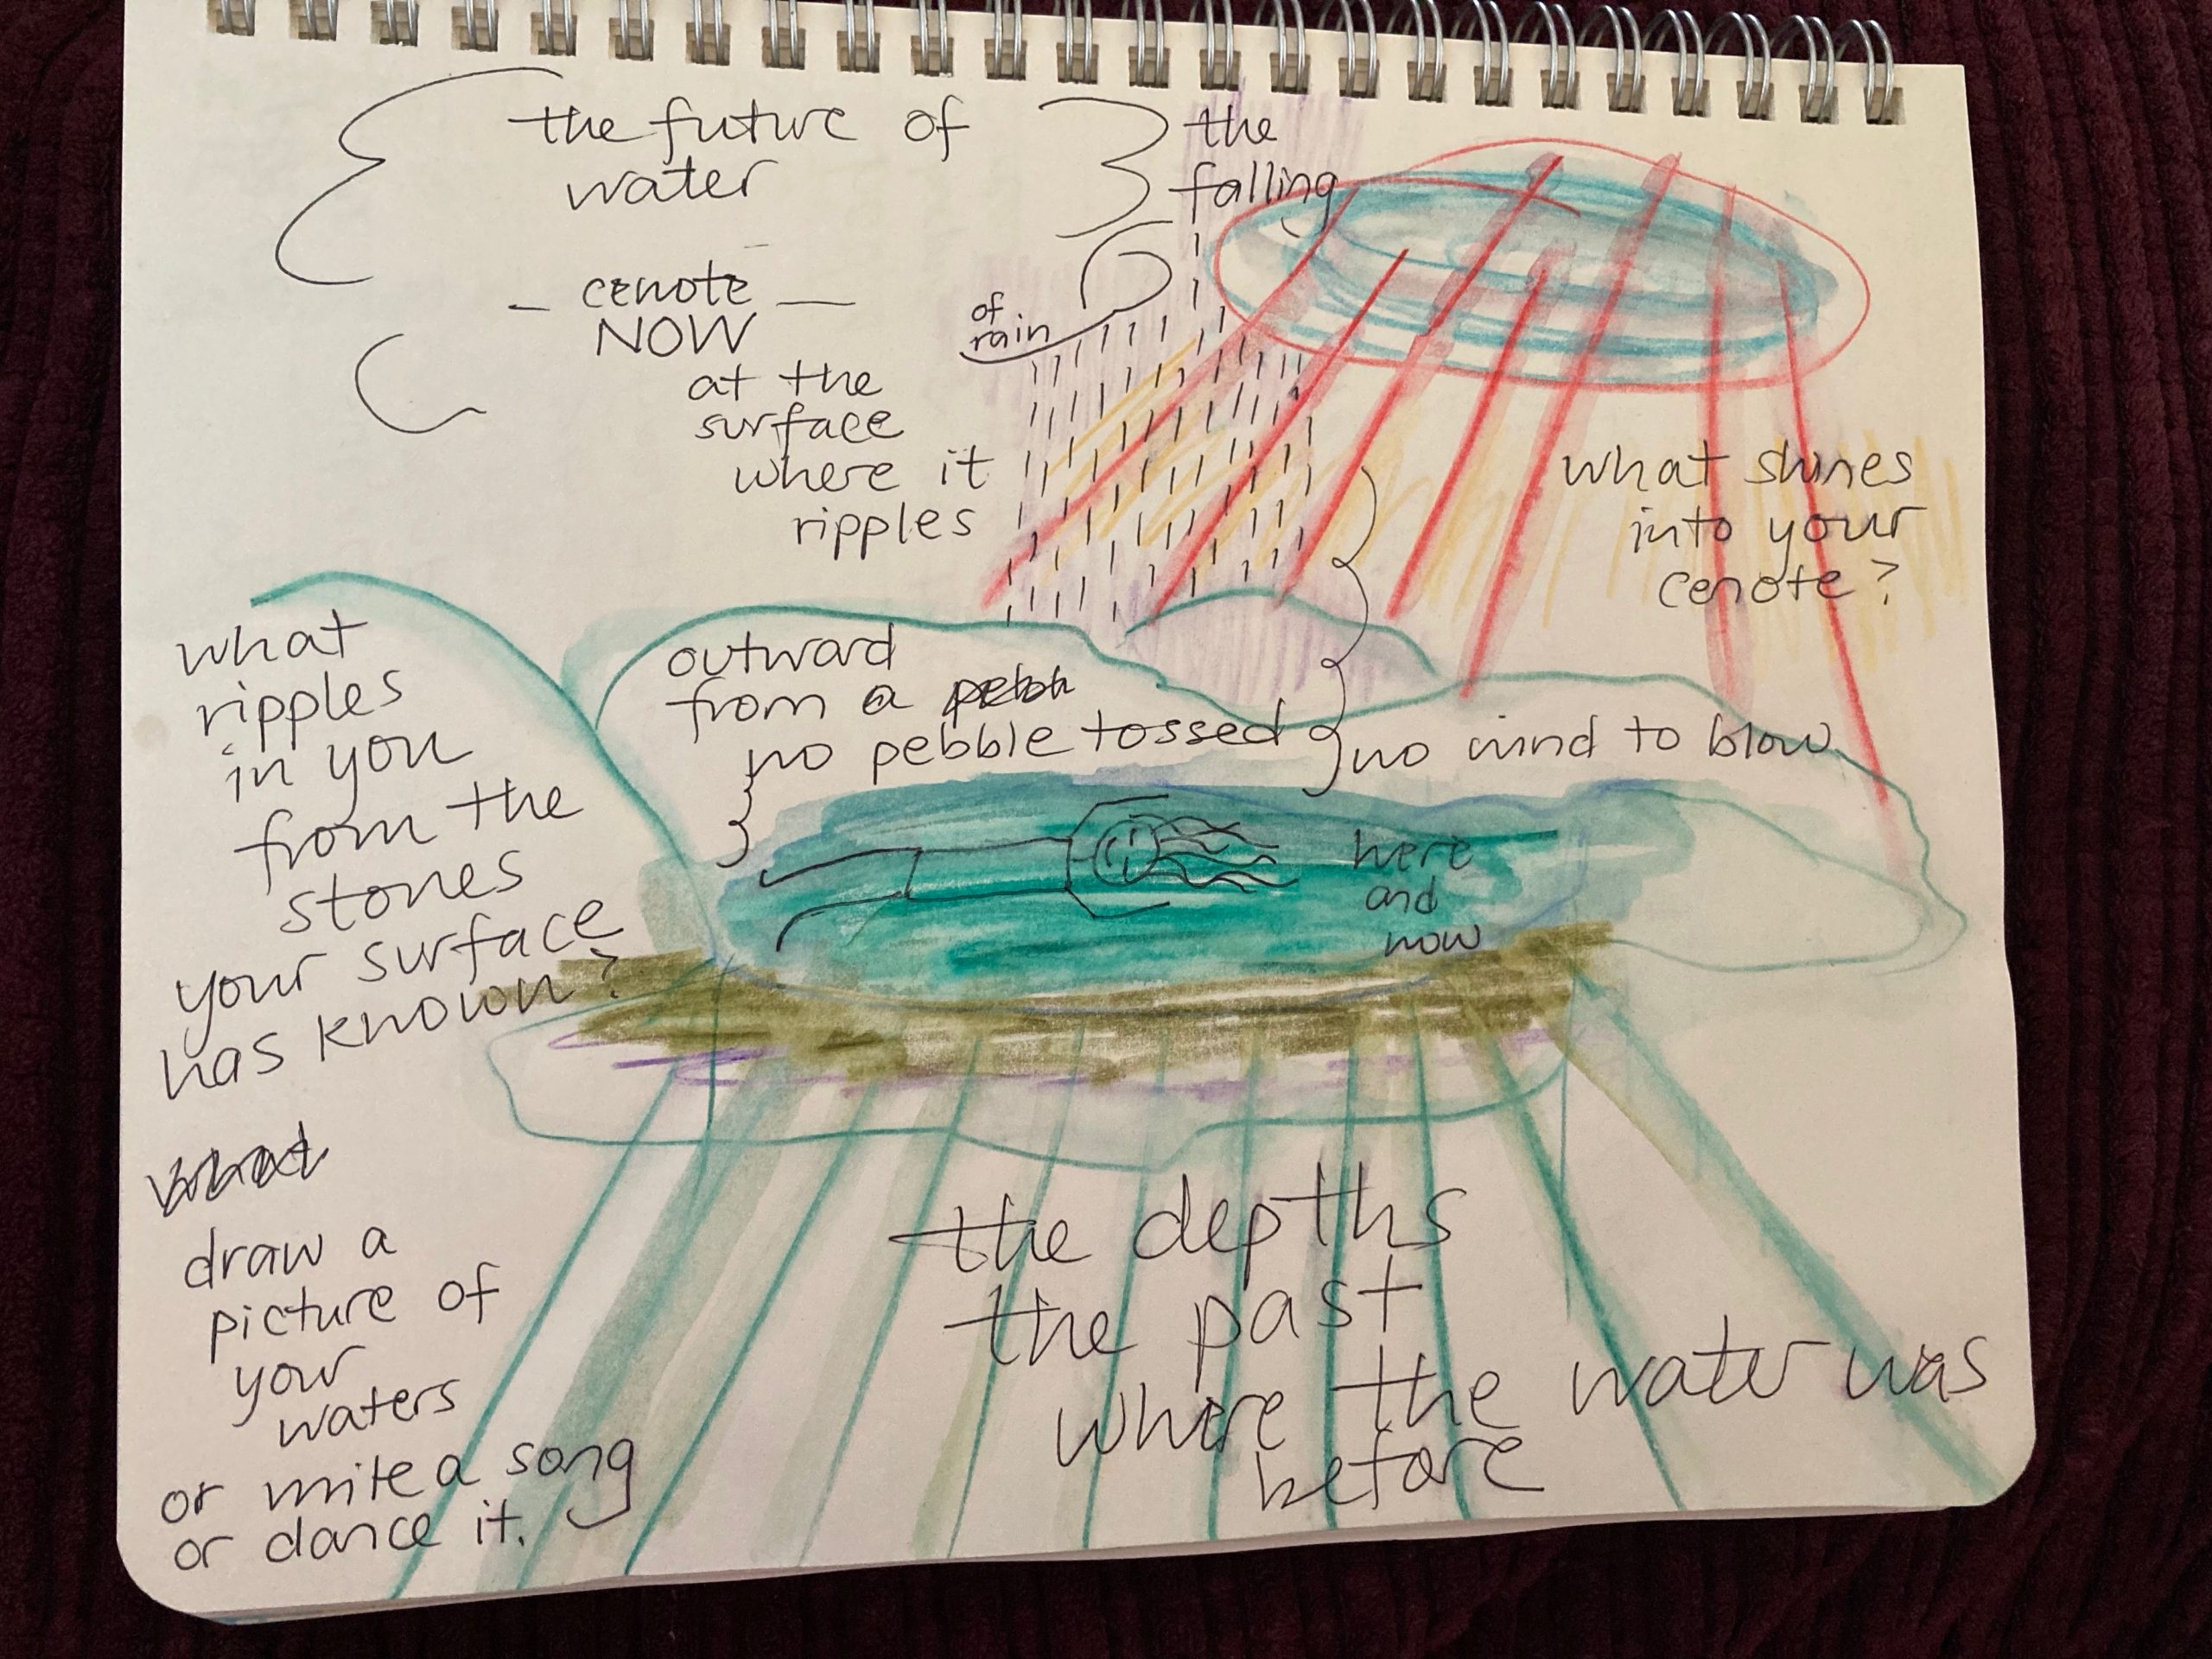 the future of
water
the
falling
of
rain
— cenote —
NOW
at the
surface
where it
ripples
what shines
into your
cenote?
outward
from a
no pebble tossed
no wind to blow
here
and
now
what
ripples
in you
from the
stones
your surface
has known?
what
draw a
picture of
your
waters
or write a song
or dance it.
the depths
the past
where the water was
before